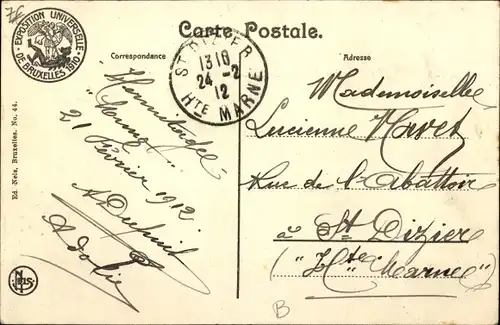 7€
EXPOSITION UNIVERSELLE
DE BRUXELLES 1910
Carte Postale.
Correspondance
Adresse
ST DIZIER
13 10
24 -2
12
HTE MARNE
Ed. Nels, Bruxelles. No. 44.
Hermitage
21 Février 1912
A Dupuis
Mademoiselle
Lucienne
Rue de l'abattoir
à St Dizier
("Hte Marne")
NELS
B